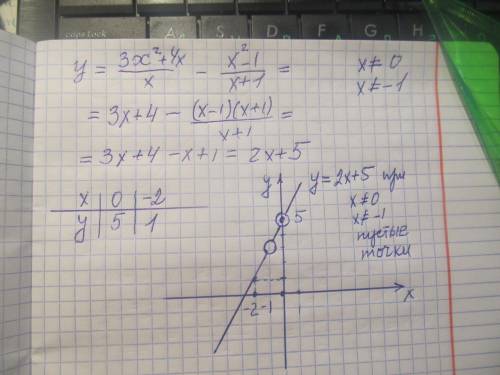 capsLock A S D F G H J K
y = (3x²+4x)/x - (x²-1)/(x+1) = x≠0
x≠-1
= 3x+4 - ((x-1)(x+1))/(x+1) =
= 3x+4 -x+1 = 2x+5
x 0 -2
y 5 1
y y=2x+5 при
x≠0
5 x≠-1
пустые
точки
-2 -1 1 x